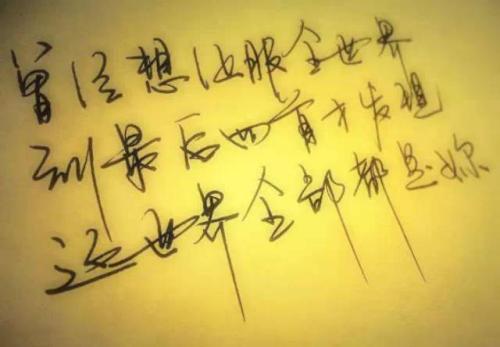 曾经想征服全世界
到最后回首才发现
这世界全部都是你